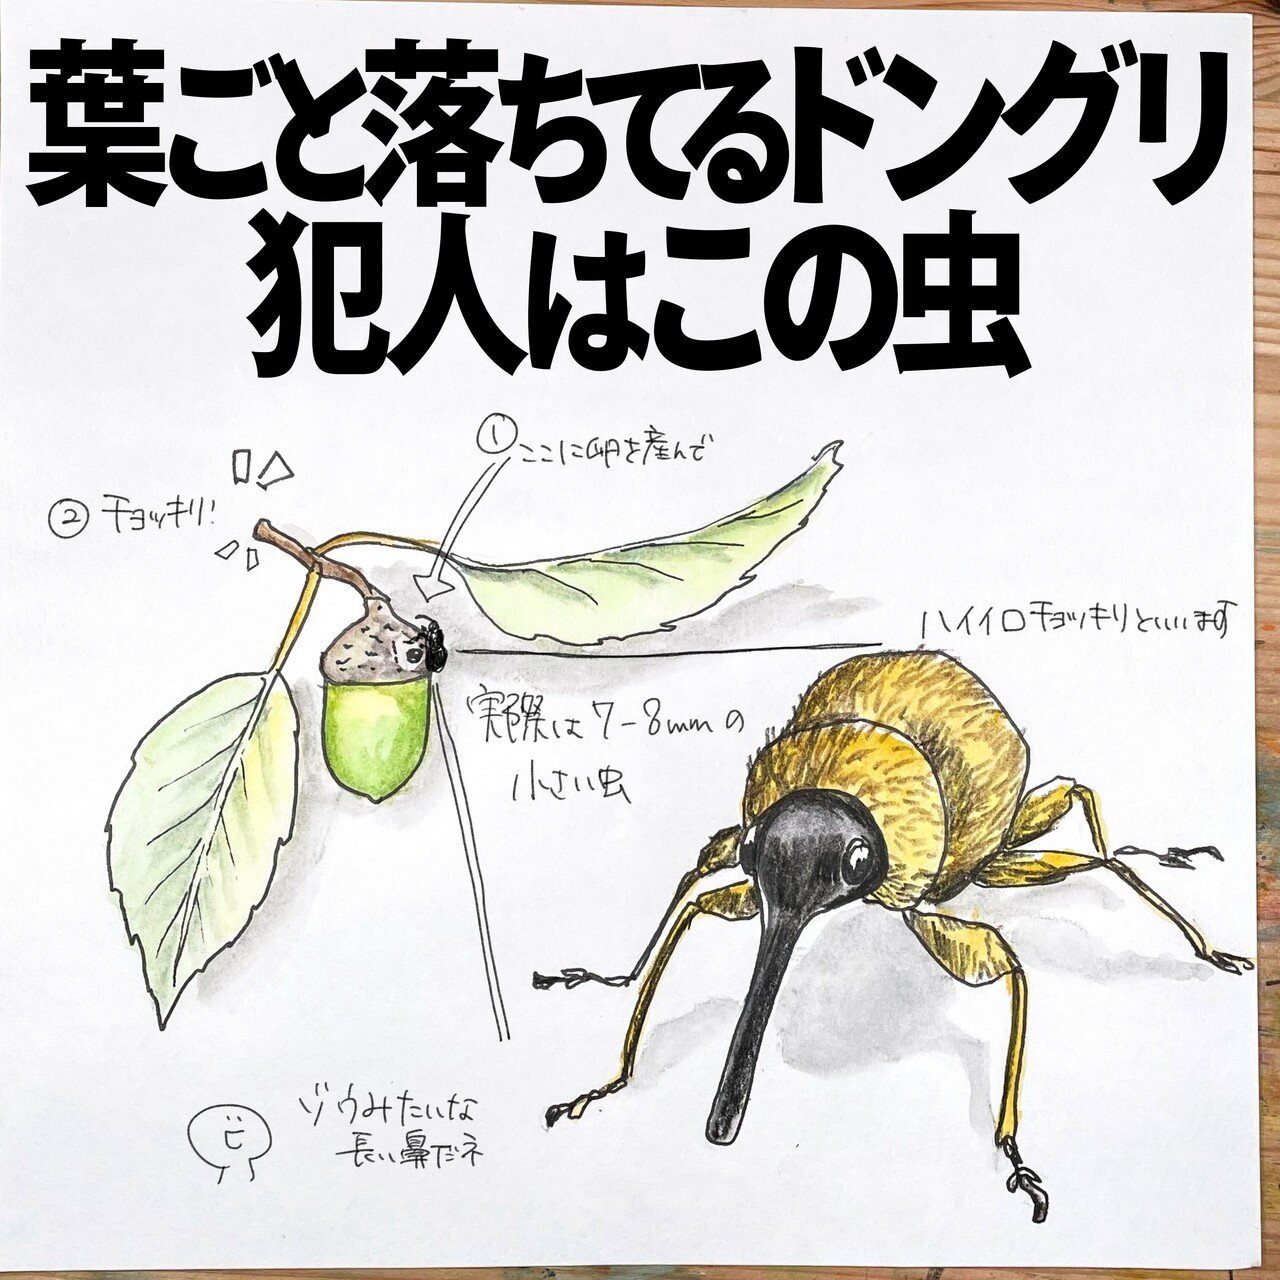 葉ごと落ちてるドングリ
犯人はこの虫
①ここに卵を産んで
②チョッキリ!
ハイイロチョッキリといいます
実際は7-8mmの
小さい虫
ゾウみたいな
長い鼻だネ